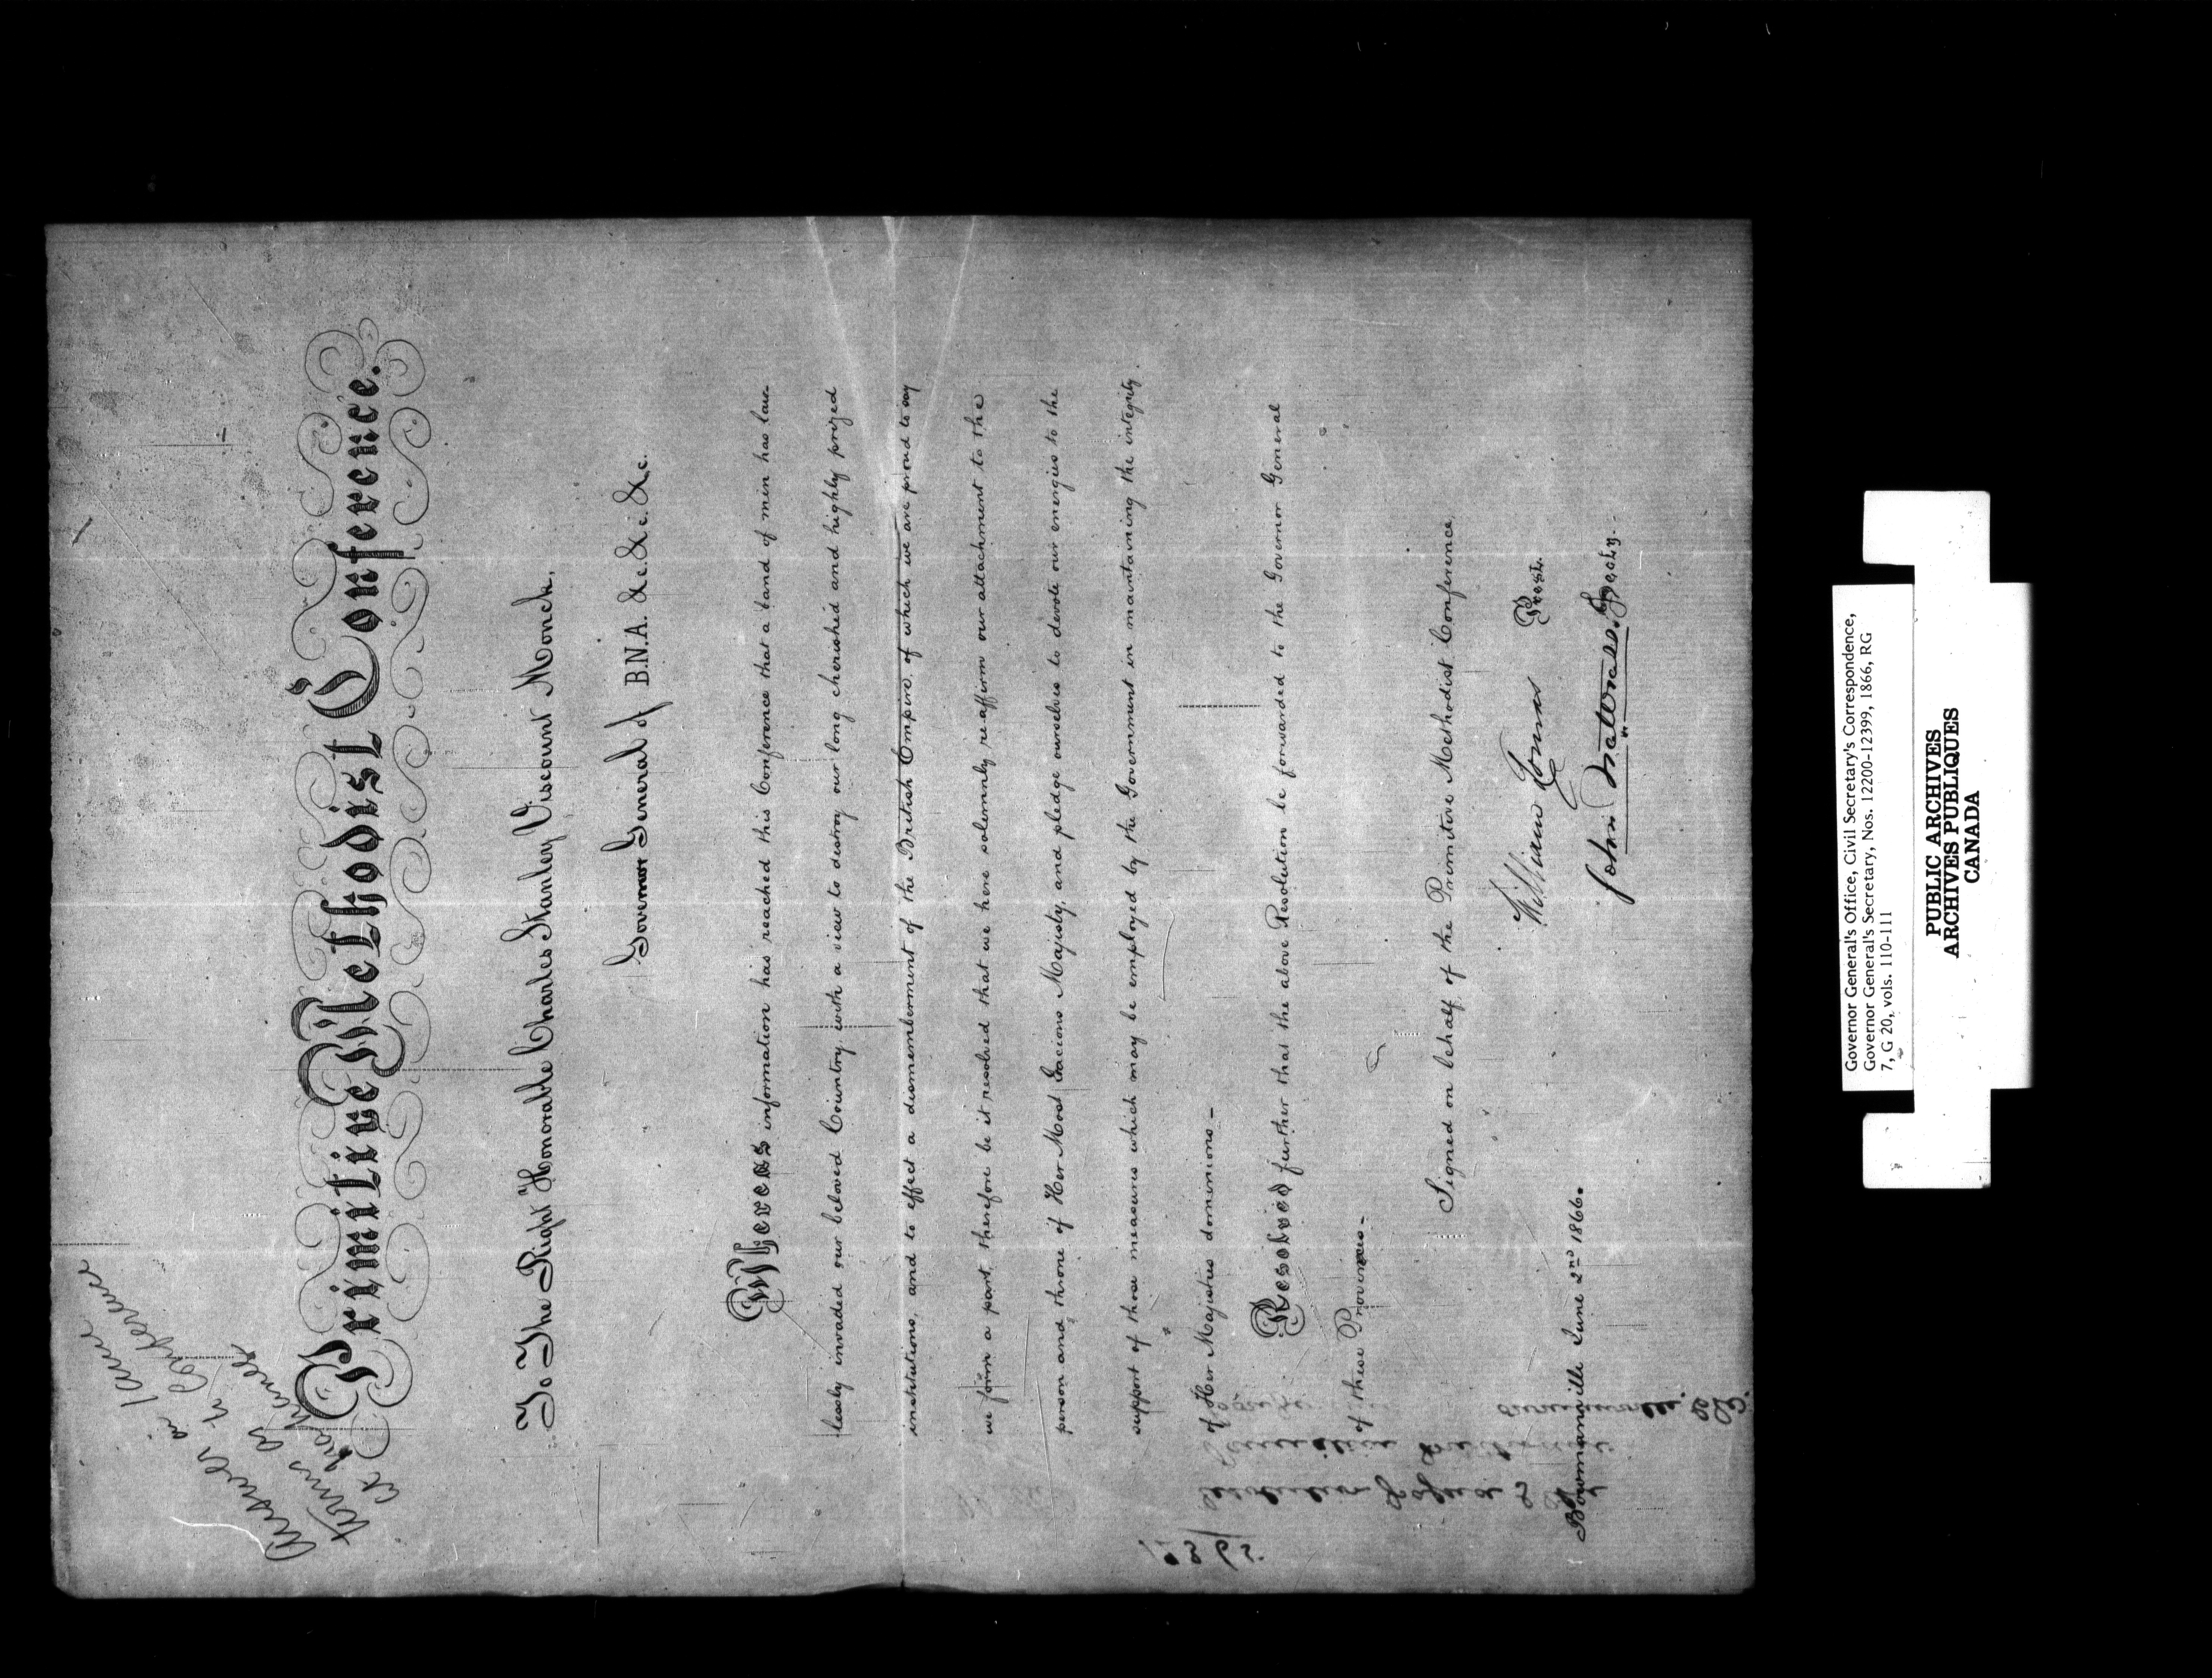 Answer in same
terms as to Conference
at
Primitive Methodist Conference.
To The Right Honorable Charles Stanley Viscount Monck,
Governor General of B.N.A. &c. &c. &c.
Whereas information has reached this Conference that a band of men has law-
lessly invaded our beloved Country, with a view to destroy our long cherished and highly prized
institutions, and to effect a dismemberment of the British Empire, of which we are proud to say
we form a part, therefore be it resolved that we here solemnly re-affirm our attachment to the
person and throne of Her Most Gracious Majesty, and pledge ourselves to devote our energies to the
support of those measures which may be employed by the Government in maintaining the integrity
of Her Majesties dominions—
Resolved further that the above Resolution be forwarded to the Governor General
of these Provinces—
Signed on behalf of the Primitive Methodist Conference,
William Prest.
John Secty.
Bowmanville June 2nd 1866.
Governor General's Office, Civil Secretary's Correspondence,
Governor General's Secretary, Nos. 12200-12399, 1866, RG
7, G 20, vols. 110-111
PUBLIC ARCHIVES
ARCHIVES PUBLIQUES
CANADA